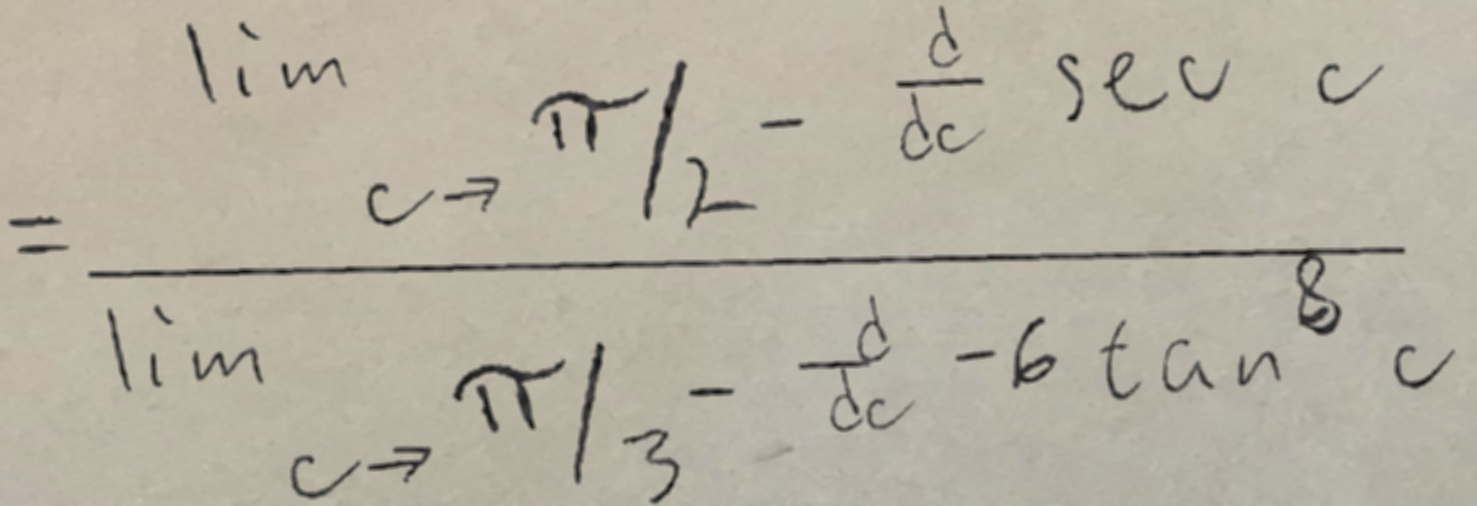 = \frac{\lim_{c \to \pi/2^-} \frac{d}{dc} \sec c}{\lim_{c \to \pi/3^-} \frac{d}{dc} -6 \tan^8 c}